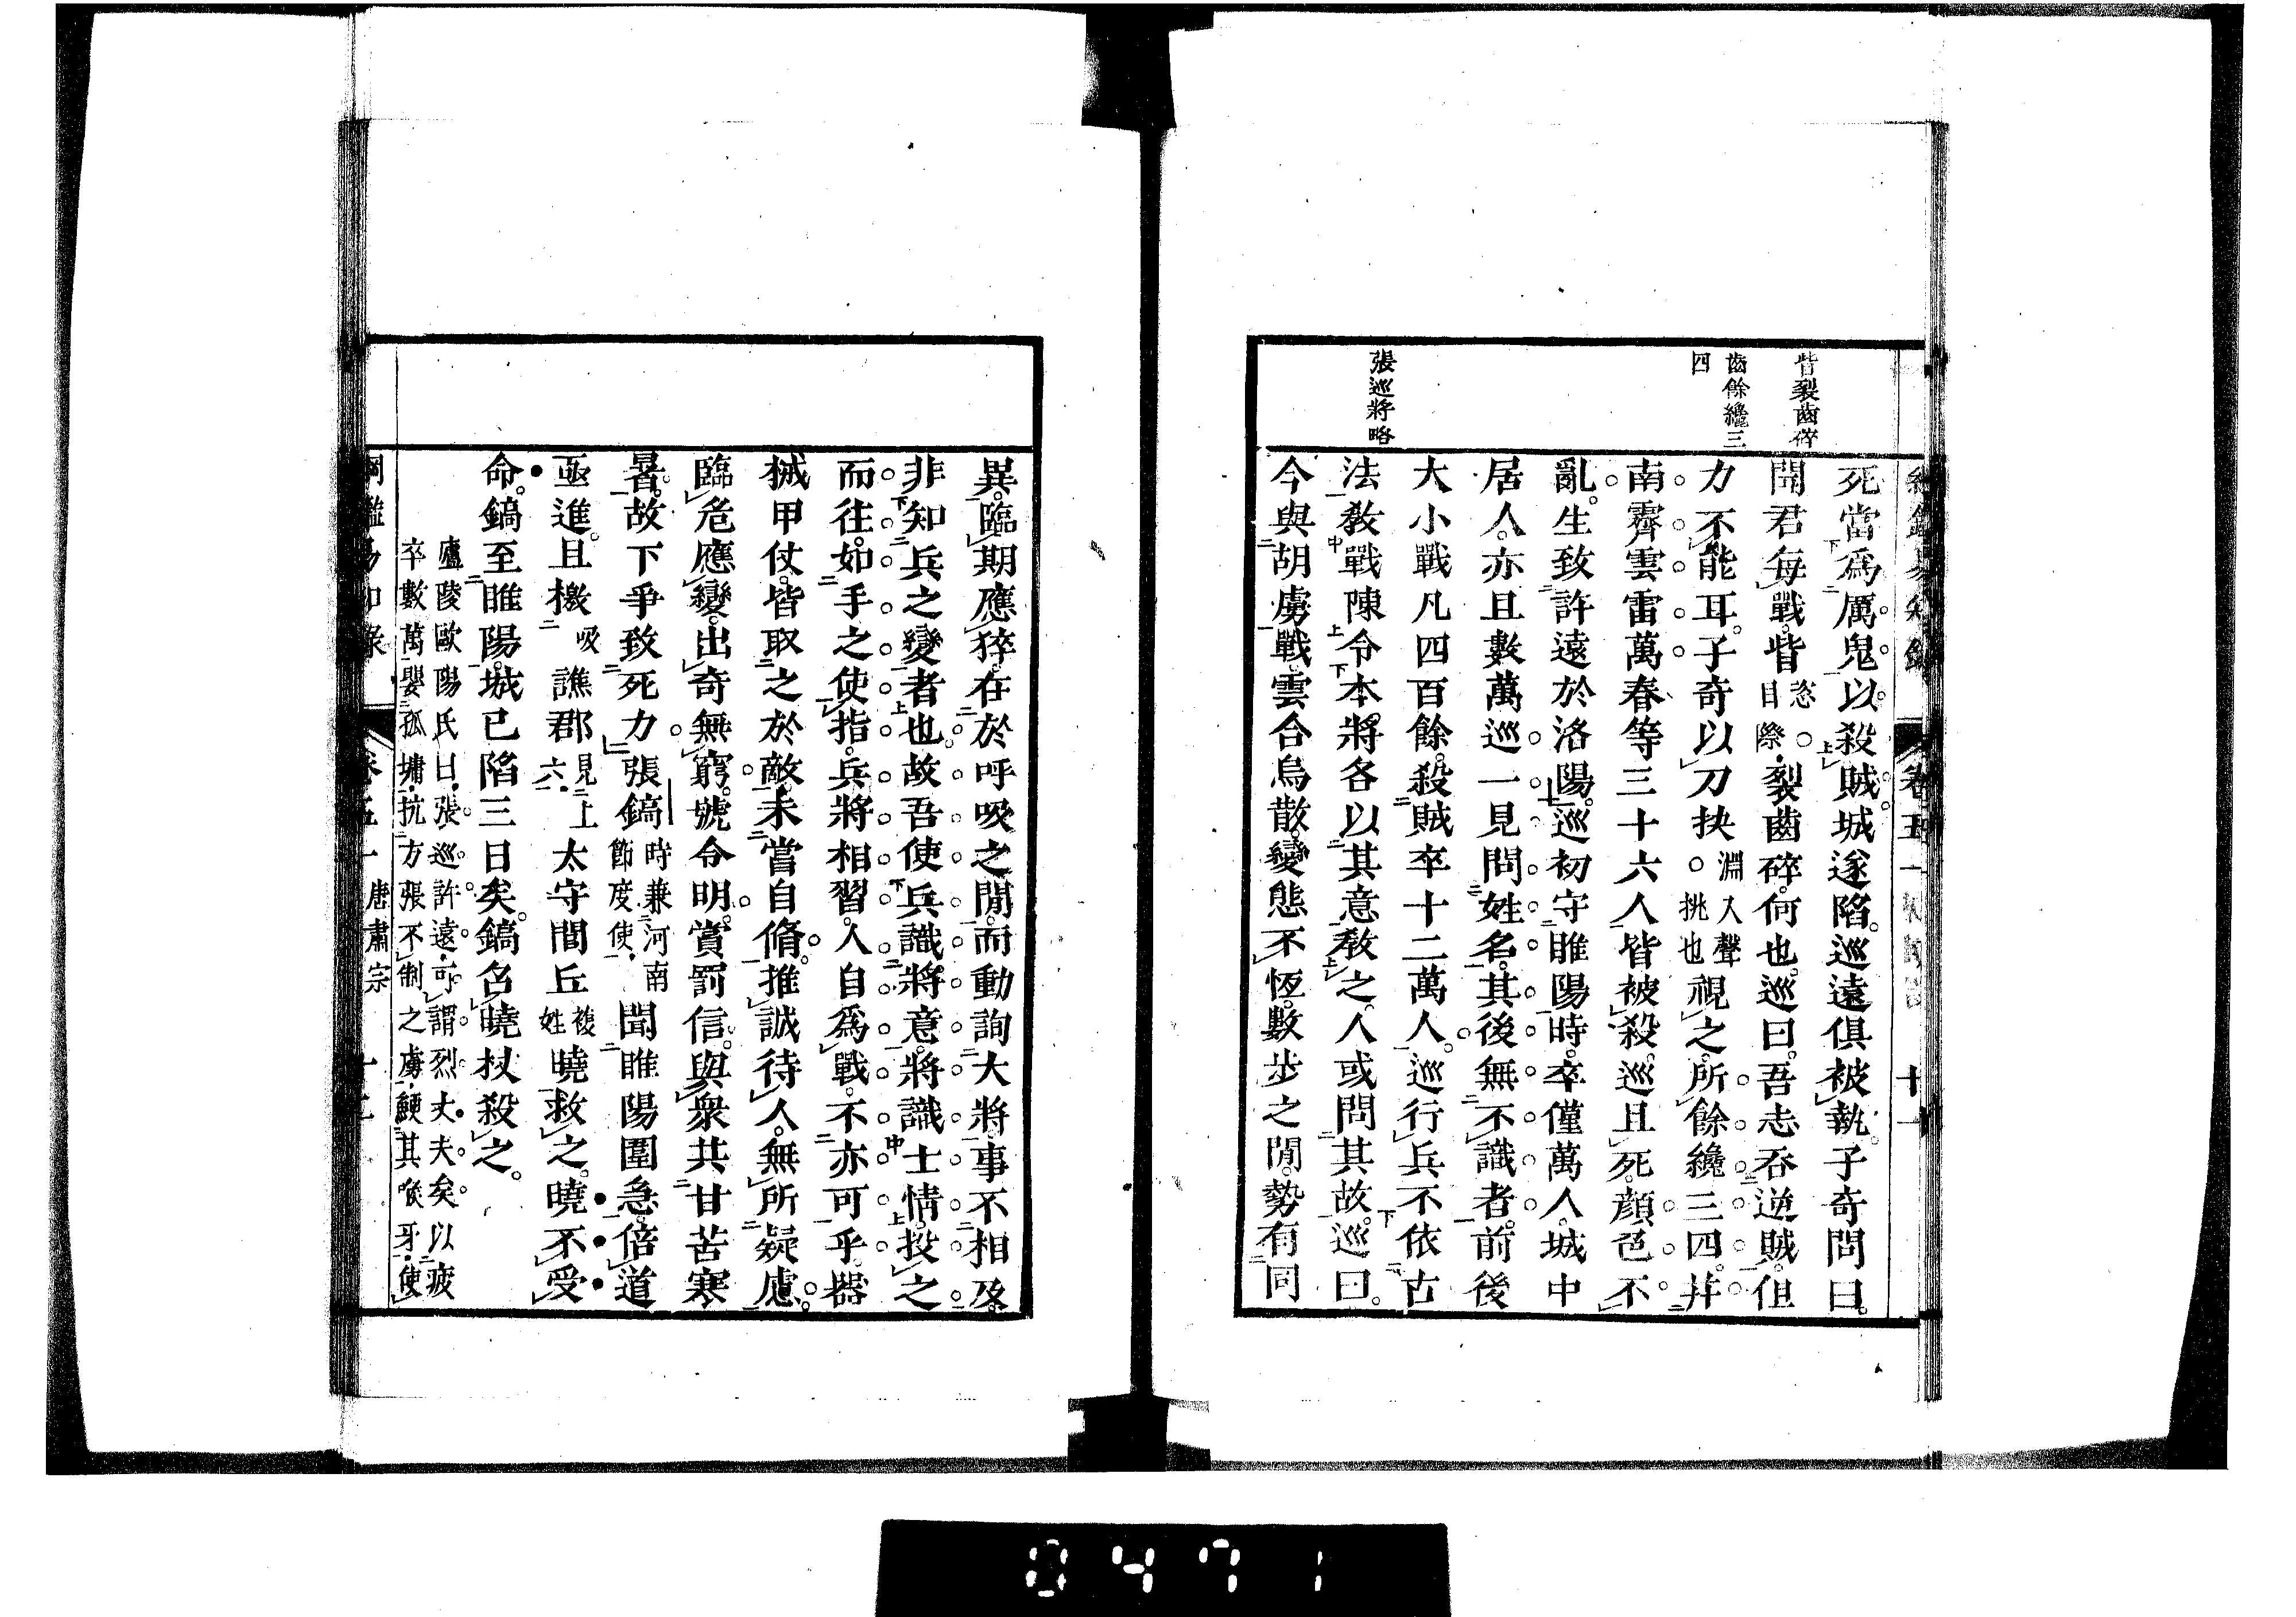 眥裂齒碎
齒餘纔三
四
張巡將略
死當爲厲鬼以殺賊城遂陷巡遠俱被執子奇問曰
聞君每戰眥恣目際裂齒碎何也巡曰吾志吞逆賊但
力不能耳子奇以刀抉淵入聲挑也視之所餘纔三四幷
南霽雲雷萬春等三十六人皆被殺巡且死顔色不
亂生致許遠於洛陽巡初守睢陽時卒僅萬人城中
居人亦且數萬巡一見問姓名其後無不識者前後
大小戰凡四百餘殺賊卒十二萬人巡行兵不依古
法敎戰陳令本將各以其意敎之人或問其故巡曰
今與胡虜戰雲合鳥散變態不恆數步之閒勢有同
異臨期應猝在於呼吸之閒而動詢大將事不相及
非知兵之變者也故吾使兵識將意將識士情投之
而往如手之使指兵將相習人自爲戰不亦可乎器
械甲仗皆取之於敵未嘗自脩推誠待人無所疑慮
臨危應變出奇無窮號令明賞罰信與衆共甘苦寒
暑故下爭致死力張鎬時兼河南節度使聞睢陽圍急倍道
亟進且檄吸譙郡見上六太守閭丘複姓曉救之曉不受
命鎬至睢陽城已陷三日矣鎬召曉杖殺之
廬陵歐陽氏曰張巡許遠可謂烈丈夫矣以疲
卒數萬嬰孤墉抗方張不制之虜鯁其喉牙使
唐肅宗
0471